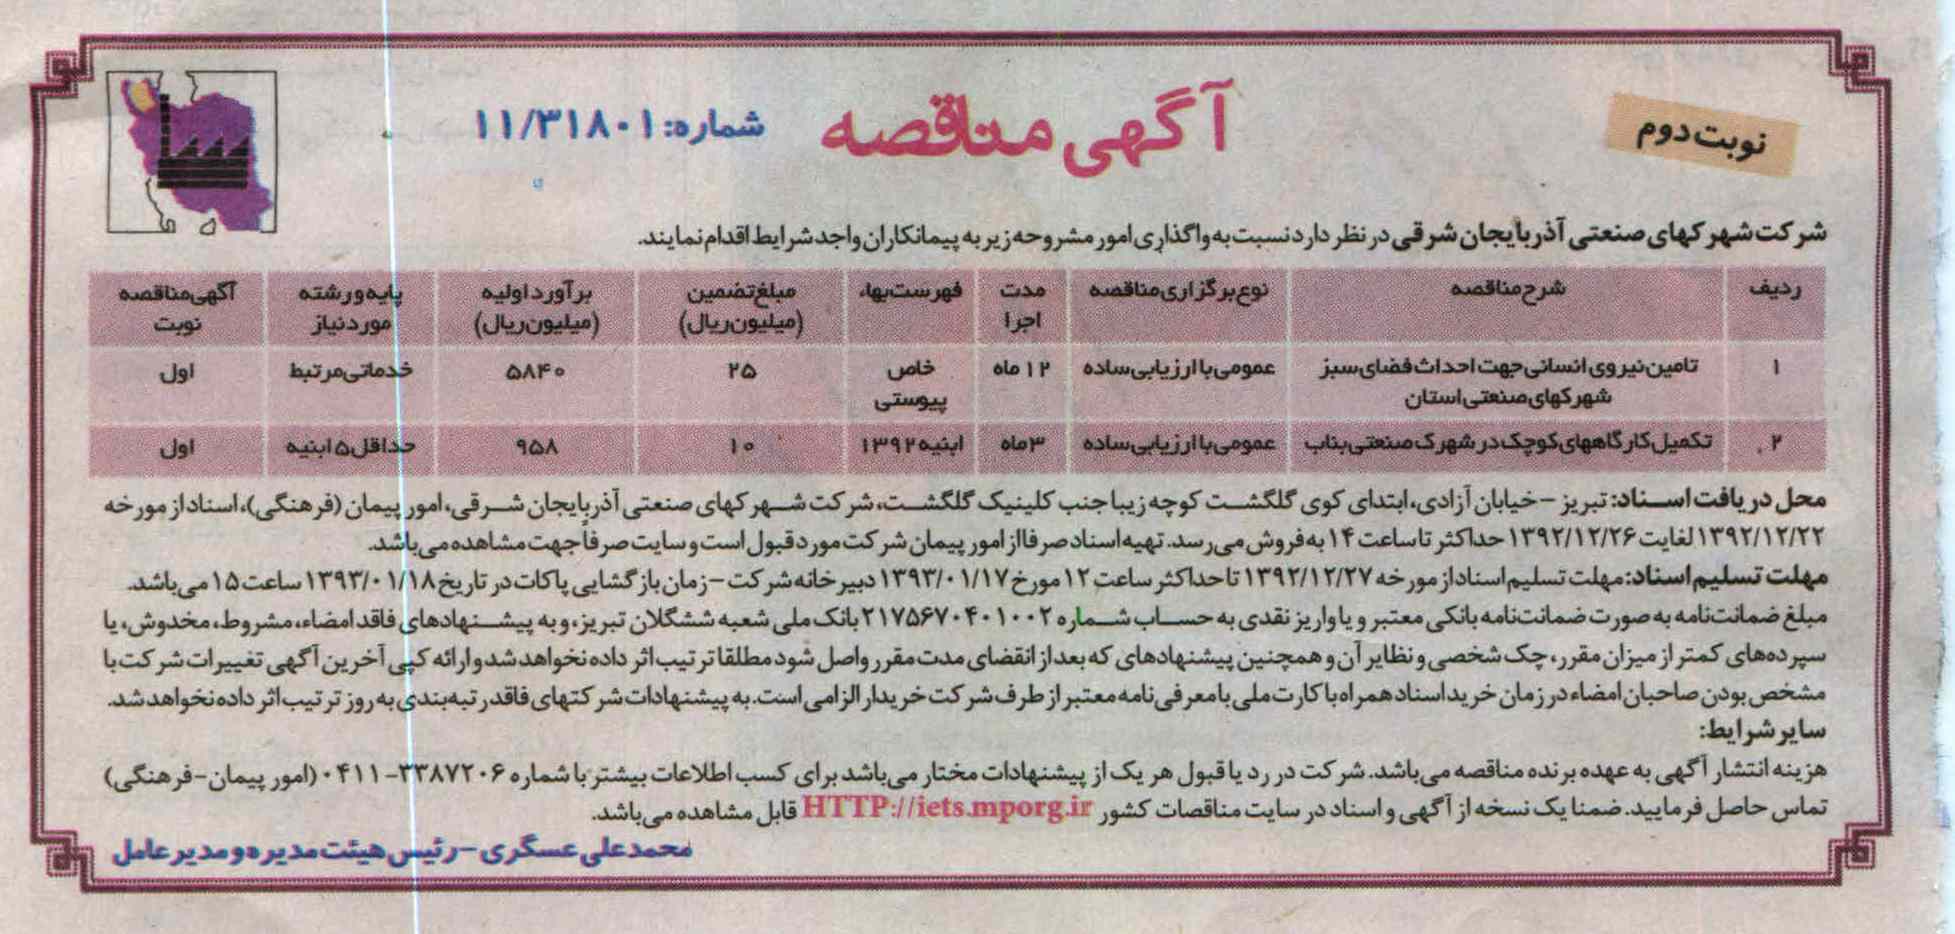 نوبت دوم
آگهی مناقصه
شماره: ۱۱/۳۱۸۰۱
شرکت شهرکهای صنعتی آذربایجان شرقی در نظر دارد نسبت به واگذاری امور مشروحه زیر به پیمانکاران واجد شرایط اقدام نمایند.
ردیف شرح مناقصه نوع برگزاری مناقصه مدت اجرا فهرست بهاء مبلغ تضمین (میلیون ریال) برآورد اولیه (میلیون ریال) پایه و رشته مورد نیاز آگهی مناقصه نوبت
۱ تامین نیروی انسانی جهت احداث فضای سبز شهرکهای صنعتی استان عمومی با ارزیابی ساده ۱۲ ماه خاص پیوستی ۲۵ ۵۸۴۰ خدماتی مرتبط اول
۲ تکمیل کارگاههای کوچک در شهرک صنعتی بناب عمومی با ارزیابی ساده ۳ ماه ابنیه ۱۳۹۲ ۱۰ ۹۵۸ حداقل ۵ ابنیه اول
محل دریافت اسناد: تبریز – خیابان آزادی، ابتدای کوی گلگشت کوچه زیبا جنب کلینیک گلگشت، شرکت شهرکهای صنعتی آذربایجان شرقی، امور پیمان (فرهنگی)، اسناد از مورخه
۱۳۹۲/۱۲/۲۲ لغایت ۱۳۹۲/۱۲/۲۶ حداکثر تا ساعت ۱۴ به فروش می‌رسد. تهیه اسناد صرفا از امور پیمان شرکت مورد قبول است و سایت صرفاً جهت مشاهده می‌باشد.
مهلت تسلیم اسناد: مهلت تسلیم اسناد از مورخه ۱۳۹۲/۱۲/۲۷ تا حداکثر ساعت ۱۲ مورخ ۱۳۹۳/۰۱/۱۷ دبیرخانه شرکت – زمان بازگشایی پاکات در تاریخ ۱۳۹۳/۰۱/۱۸ ساعت ۱۵ می‌باشد.
مبلغ ضمانت‌نامه به صورت ضمانت‌نامه بانکی معتبر و یا واریز نقدی به حساب شماره ۲۱۷۵۶۷۰۴۰۱۰۰۲ بانک ملی شعبه ششگلان تبریز، و به پیشنهادهای فاقد امضاء، مشروط، مخدوش، یا
سپرده‌های کمتر از میزان مقرر، چک شخصی و نظایر آن و همچنین پیشنهادهای که بعد از انقضای مدت مقرر واصل شود مطلقا ترتیب اثر داده نخواهد شد و ارائه کپی آخرین آگهی تغییرات شرکت با
مشخص بودن صاحبان امضاء در زمان خرید اسناد همراه با کارت ملی با معرفی نامه معتبر از طرف شرکت خریدار الزامی است. به پیشنهادات شرکتهای فاقد رتبه‌بندی به روز ترتیب اثر داده نخواهد شد.
سایر شرایط:
هزینه انتشار آگهی به عهده برنده مناقصه می‌باشد. شرکت در رد یا قبول هر یک از پیشنهادات مختار می‌باشد برای کسب اطلاعات بیشتر با شماره ۳۳۸۷۲۰۶-۰۴۱۱ (امور پیمان-فرهنگی)
تماس حاصل فرمایید. ضمنا یک نسخه از آگهی و اسناد در سایت مناقصات کشور HTTP://iets.mporg.ir قابل مشاهده می‌باشد.
محمدعلی عسگری – رئیس هیئت مدیره و مدیر عامل